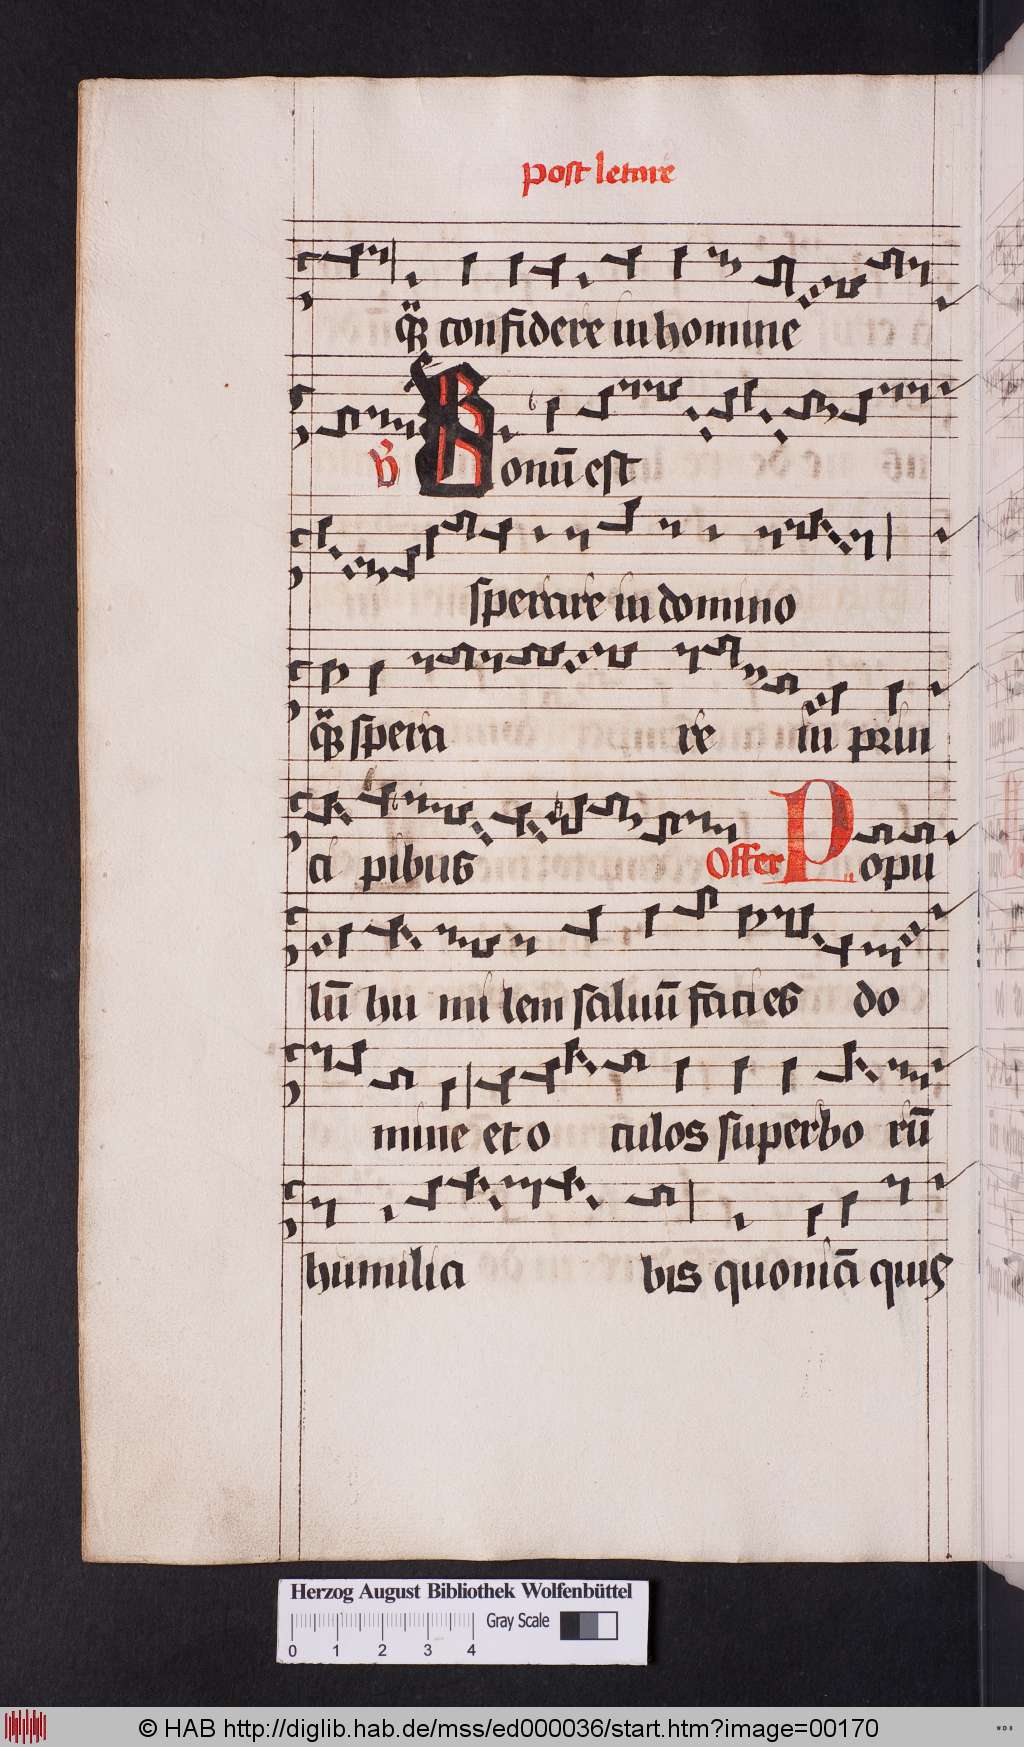 post letare
qꝫ confidere in homine
℣ Bonū est
sperare in domino
qꝫ spera re in prin
ci pibus Offer Popu
lū hu mi lem saluū facies do
mine et o culos superbo rū
humilia bis quoniā quis
Herzog August Bibliothek Wolfenbüttel
Gray Scale
0 1 2 3 4
© HAB http://diglib.hab.de/mss/ed000036/start.htm?image=00170